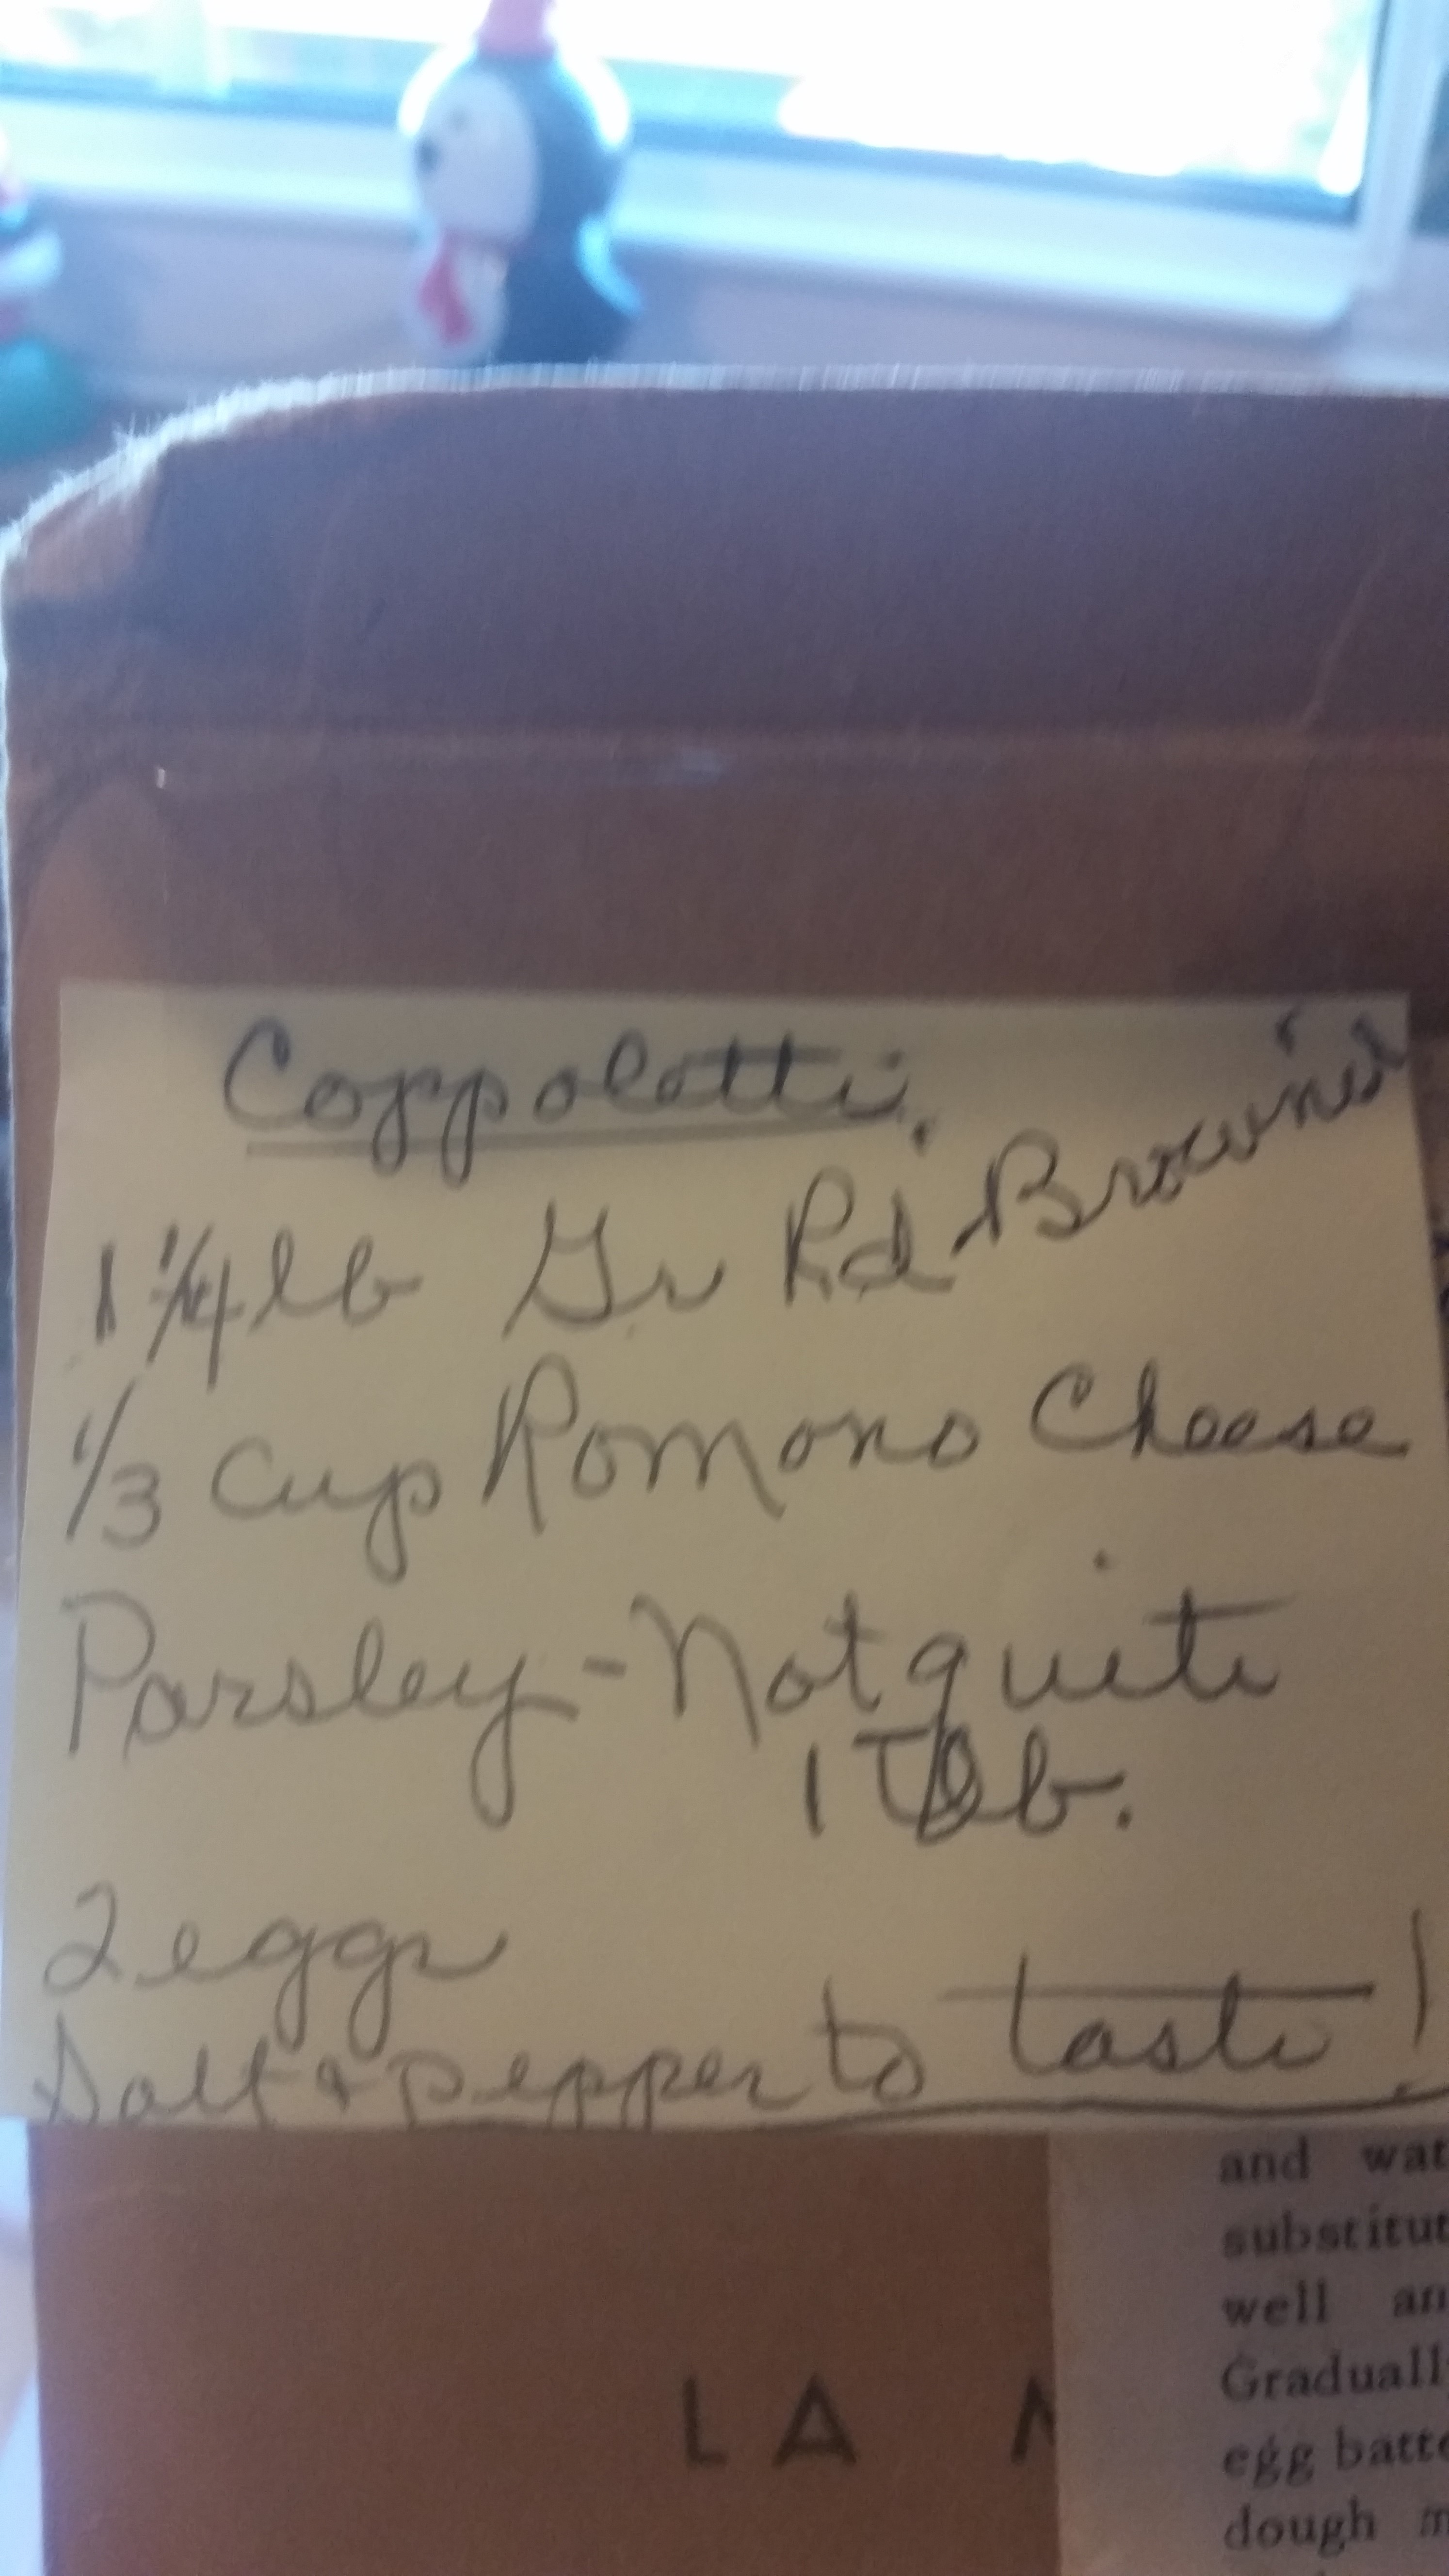 Coppoletti.
1 1/4 lb Gr Rd Browned
1/3 Cup Romono Cheese
Parsley - Not quite
1 Tbb.
2 eggs
Salt & pepper to taste!
and wat
substitut
well an
Graduall
egg batte
dough m
LA